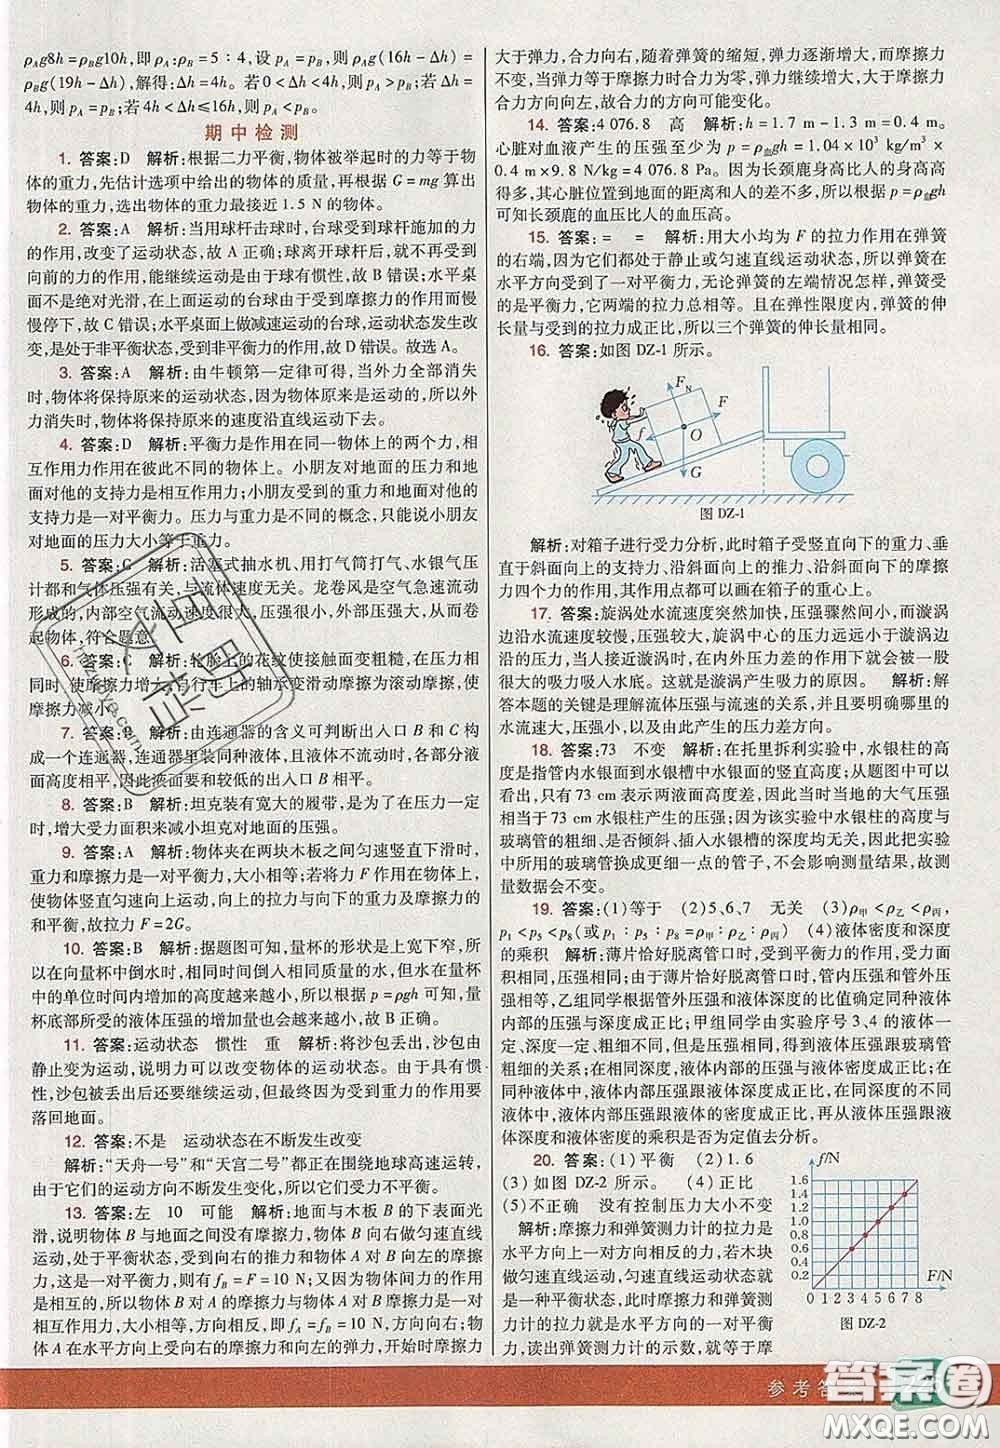 ρAg8h=ρBg10h,即 ρA:ρB=5∶4,设 pA=pB,则 ρAg(16h-Δh)=
ρBg(19h-Δh),解得:Δh=4h。若 0<Δh<4h,则 pA>pB;若 Δh=
4h,则 pA=pB;若 4h<Δh≤16h,则 pA<pB。
期中检测
1. 答案:D 解析:根据二力平衡,物体被举起时的力等于物
体的重力,先估计选项中给出的物体的质量,再根据 G=mg 算出
物体的重力,选出物体的重力最接近 1.5 N 的物体。
2. 答案:A 解析:当用球杆击球时,台球受到球杆施加的力
的作用,改变了运动状态,故 A 正确;球离开球杆后,不再受到
向前的力的作用,能继续运动是由于球有惯性,故 B 错误;水平
桌面不是绝对光滑,在上面运动的台球会受到摩擦力的作用慢
慢停下,故 C 错误;水平桌面上做减速运动的台球,运动状态发生改
变,是处于非平衡状态,受到非平衡力的作用,故 D 错误。故选 A。
3. 答案:A 解析:由牛顿第一定律可得,当外力全部消失
时,物体将保持原来的运动状态,因为物体是运动的,所以当外
力消失时,物体将保持原来的速度沿直线运动下去。
4. 答案:D 解析:平衡力是作用在同一物体上的两个力,相
互作用力作用在彼此不同的物体上。小朋友对地面的压力和地
面对他的支持力是相互作用力;小朋友受到的重力和地面对他的
支持力是一对平衡力。压力与重力是不同的概念,只能说小朋友
对地面的压力大小等于重力。
5. 答案:C 解析:活塞式抽水机、用打气筒打气、水银气压
计都和气体压强有关,与流体速度无关。龙卷风是空气急速流动
形成的,内部空气流动速度很大,压强很小,外部压强大,从而卷
起物体,符合题意。
6. 答案:C 解析:轮胎上的花纹使接触面变粗糙,在压力相
同时,使摩擦力增大;自行车上的轴承变滑动摩擦为滚动摩擦,使
摩擦力减小。
7. 答案:B 解析:由连通器的含义可判断出入口 B 和 C 构
成一个连通器,连通器里装同种液体,且液体不流动时,各部分液
面高度相平,因此液面要和较低的出入口 B 相平。
8. 答案:B 解析:坦克装有宽大的履带,是为了在压力一定
时,增大受力面积来减小坦克对地面的压强。
9. 答案:A 解析:物体夹在两块木板之间匀速竖直下滑时,
重力和摩擦力是一对平衡力,大小相等;若将力 F 作用在物体上,
使物体竖直匀速向上运动,向上的拉力与向下的重力及摩擦力的
和平衡,故拉力 F=2G。
10. 答案:B 解析:据题图可知,量杯的形状是上宽下窄,所
以在向量杯中倒水时,相同时间内倒入相同质量的水,在量杯
中的单位时间内增加的高度越来越小,根据 p=ρgh 可知,量
杯底部所受的液体压强的增加量也会越来越小,故 B 正确。
11. 答案:运动状态 惯性 重 解析:将沙包丢出,沙包由
静止变为运动,说明力可以改变物体的运动状态。由于具有惯
性,沙包被丢出后还要继续运动,但因为受到重力的作用而要
落回地面。
12. 答案:不是 运动状态在不断发生改变
解析:“天舟一号”和“天宫二号”都正在围绕地球高速运行,
由于它们的运动方向不断发生变化,所以它们受力不平衡。
13. 答案:左 10 可能 解析:地面与木板 B 的下表面光
滑,说明物体 B 与地面之间没有摩擦力。物体 B 向右做匀速直线
运动,处于平衡状态,受到向右的推力和物体 A 对 B 向左的摩擦
力,这是一对平衡力,则有 fB=F=10 N;又因为物体间力的作用
是相互的,所以物体 B 对 A 的摩擦力与物体 A 对 B 的摩擦力是
一对相互作用力,大小相等,方向相反,即 fA=fB=10 N,方向向右;
物体 A 在水平方向上受向右的摩擦力和向左的弹力,开始时摩擦力
大于弹力,合力向右,随着弹簧的缩短,弹力逐渐增大,而摩擦力
不变,当弹力等于摩擦力时合力为零,弹力继续增大,大于摩擦力
合力方向向左,故合力的方向可能变化。
14. 答案:4 076.8 高 解析:h=1.7 m-1.3 m=0.4 m。
心脏对血液产生的压强至少为 p=ρ血gh=1.04×10³ kg/m³×
0.4 m×9.8 N/kg=4 076.8 Pa。因为长颈鹿身高比人的身高高
得多,其心脏位置到地面的距离和人的差不多,所以根据 p=ρ血gh
可知长颈鹿的血压比人的血压高。
15. 答案:= = 解析:用大小均为 F 的拉力作用在弹簧
的右端,因为它们都处于静止或匀速直线运动状态,所以弹簧在
水平方向受到了一对平衡力,无论弹簧的左端情况怎样,弹簧受
的是平衡力,它两端的拉力总相等。且在弹性限度内,弹簧的伸
长量与受到的拉力成正比,所以三个弹簧的伸长量相同。
16. 答案:如图 DZ-1 所示。
FN
F
f
O
G
图 DZ-1
解析:对箱子进行受力分析,此时箱子受竖直向下的重力、垂
直于斜面向上的支持力、沿斜面向上的推力、沿斜面向下的摩擦
力四个力的作用,其作用点都可以画在箱子的重心上。
17. 答案:旋涡处水流速度突然加快,压强骤然间小,而旋涡
边沿水流速度较慢,压强较大,旋涡中心的压力远远小于漩涡
边沿的压力,当接近漩涡时,在内外压力差的作用下就会被一股
很大的吸力吸入水底。这就是漩涡产生吸力的原因。 解析:解
答本题的关键是理解流体压强与流速的关系,并且要明确哪里的
水流速大,压强小,以及由此产生的压力差方向。
18. 答案:73 不变 解析:在托里拆利实验中,水银柱的高
度是指管内水银面到水银槽中水银面的竖直高度;从题图中可以
看出,只有 73 cm 表示两液面高度差,所以此地的大气压强
相当于 73 cm 水银柱产生的压强;因为该实验中水银柱的高度与
玻璃管的粗细、是否倾斜、插入水银槽的深度均无关,故把实验
中所用的玻璃管换成更细一点的管子,不会影响测量结果,故测
量数据会不变。
19. 答案:(1)等于 (2)5、6、7 无关 (3)ρ甲<ρ乙<ρ丙,
p1<p5<p8(或 p1:p5:p8=ρ甲:ρ乙:ρ丙) (4)液体密度和深度
的乘积 解析:薄片恰好脱离管口时,受到平衡力的作用,受力面
积相等,所以压强相等。由于薄片恰好脱离管口时,管内压强和管外压
强相等,乙组同学根据管外压强和液体深度的比值确定同种液体
内部的压强与深度的关系;甲组同学由实验序号 3、4 的液体深度
一定、粗细不同,但管外压强相同,得到同种液体压强跟玻璃管
粗细的关系;在同种液体中,液体内部压强跟液体深度成正比,
在同深度的液体中,液体内部压强跟液体的密度成正比,从而
可知,液体内部压强跟液体深度成正比,在同深度的不同液体中,
液体内部压强跟液体的密度成正比,再从液体压强跟液体
深度和液体密度的乘积是否为定值去分析。
20. 答案:(1)平衡 (2)1.6
(3)如图 DZ-2 所示。 (4)正比
(5)不正确 没有控制压力大小不变
解析:摩擦力和弹簧测力计的拉力是
水平方向上一对方向相反的力,若木块
做匀速直线运动,匀速直线运动状态
是一种平衡状态,此时摩擦力和弹簧测
力计的拉力大小相等,是一对平衡
力,读出弹簧测力计的示数,就等于摩
f/N
1.6
1.4
1.2
1.0
0.8
0.6
0.4
0.2
F/N
0 1 2 3 4 5 6 7 8
图 DZ-2
参考答案
答案圈
MXQE.COM